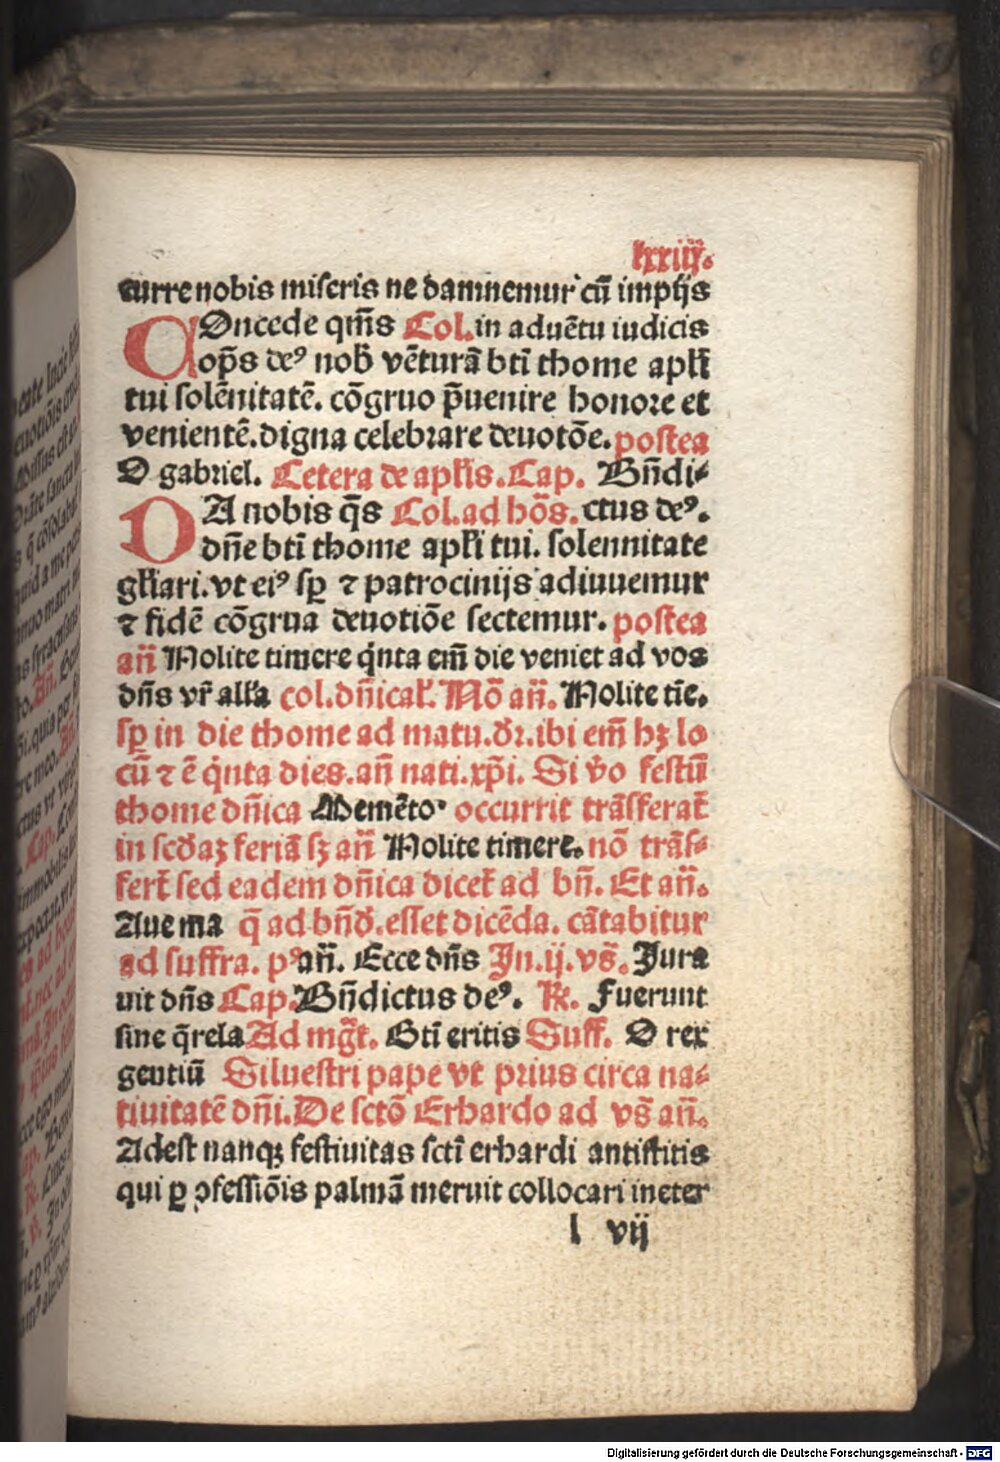 lxxiiij.
curre nobis miseris ne damnemur cū impijs
COncede qm̄s Col. in aduētu iudicis
op̄s deꝰ nob̄ vētura b̄ti thome apl̄i
tui solēnitatē. cōgruo p̄uenire honore et
venientē. digna celebrare deuotōe. postea
O gabriel. Cetera de apl̄is. Cap. Bn̄di-
DA nobis q̄s Col. ad hōs. ctus deꝰ.
dn̄e bt̄i thome apl̄i tui. solennitate
gl̄iari. vt eiꝰ sꝑ ⁊ patrocinijs adiuuemur
⁊ fidē cōgrua deuotiōe sectemur. postea
an̄ Nolite timere q̇nta em̄ die veniet ad vos
dn̄s vr̄ all̄a col. dn̄ical̄. Nō an̄. Nolite tīe.
sꝑ in die thome ad matu. dr̄. ibi em̄ hꝫ lo
cū ⁊ ē q̇nta dies. an̄ nati. xp̄i. Si v̄o festū
thome dn̄ica Memēto occurrit trāsferat̄
in scd̄aꝫ feriā sꝫ an̄ Nolite timere. nō trās-
fert̄ sed eadem dn̄ica dicet̄ ad bn̄. Et an̄.
Aue ma q̄ ad bn̄d̄. esset dicēda. cātabitur
ad suffra. pꝰ an̄. Ecce dn̄s In. ij. vs̄. Jura
uit dn̄s Cap. Bn̄dictus deꝰ. R̄. Fuerunt
sine q̄rela Ad mgt̄. Bt̄i eritis Suff. O rex
gentiū Siluestri pape vt prius circa na-
tiuitatē dn̄i. De sctō Erhardo ad vs̄ an̄.
Adest nanqꝫ festiuitas sct̄i erhardi antistitis
qui ꝑ ꝯfessiōis palmā meruit collocari in eter
l vij
Digitalisierung gefördert durch die Deutsche Forschungsgemeinschaft - DFG